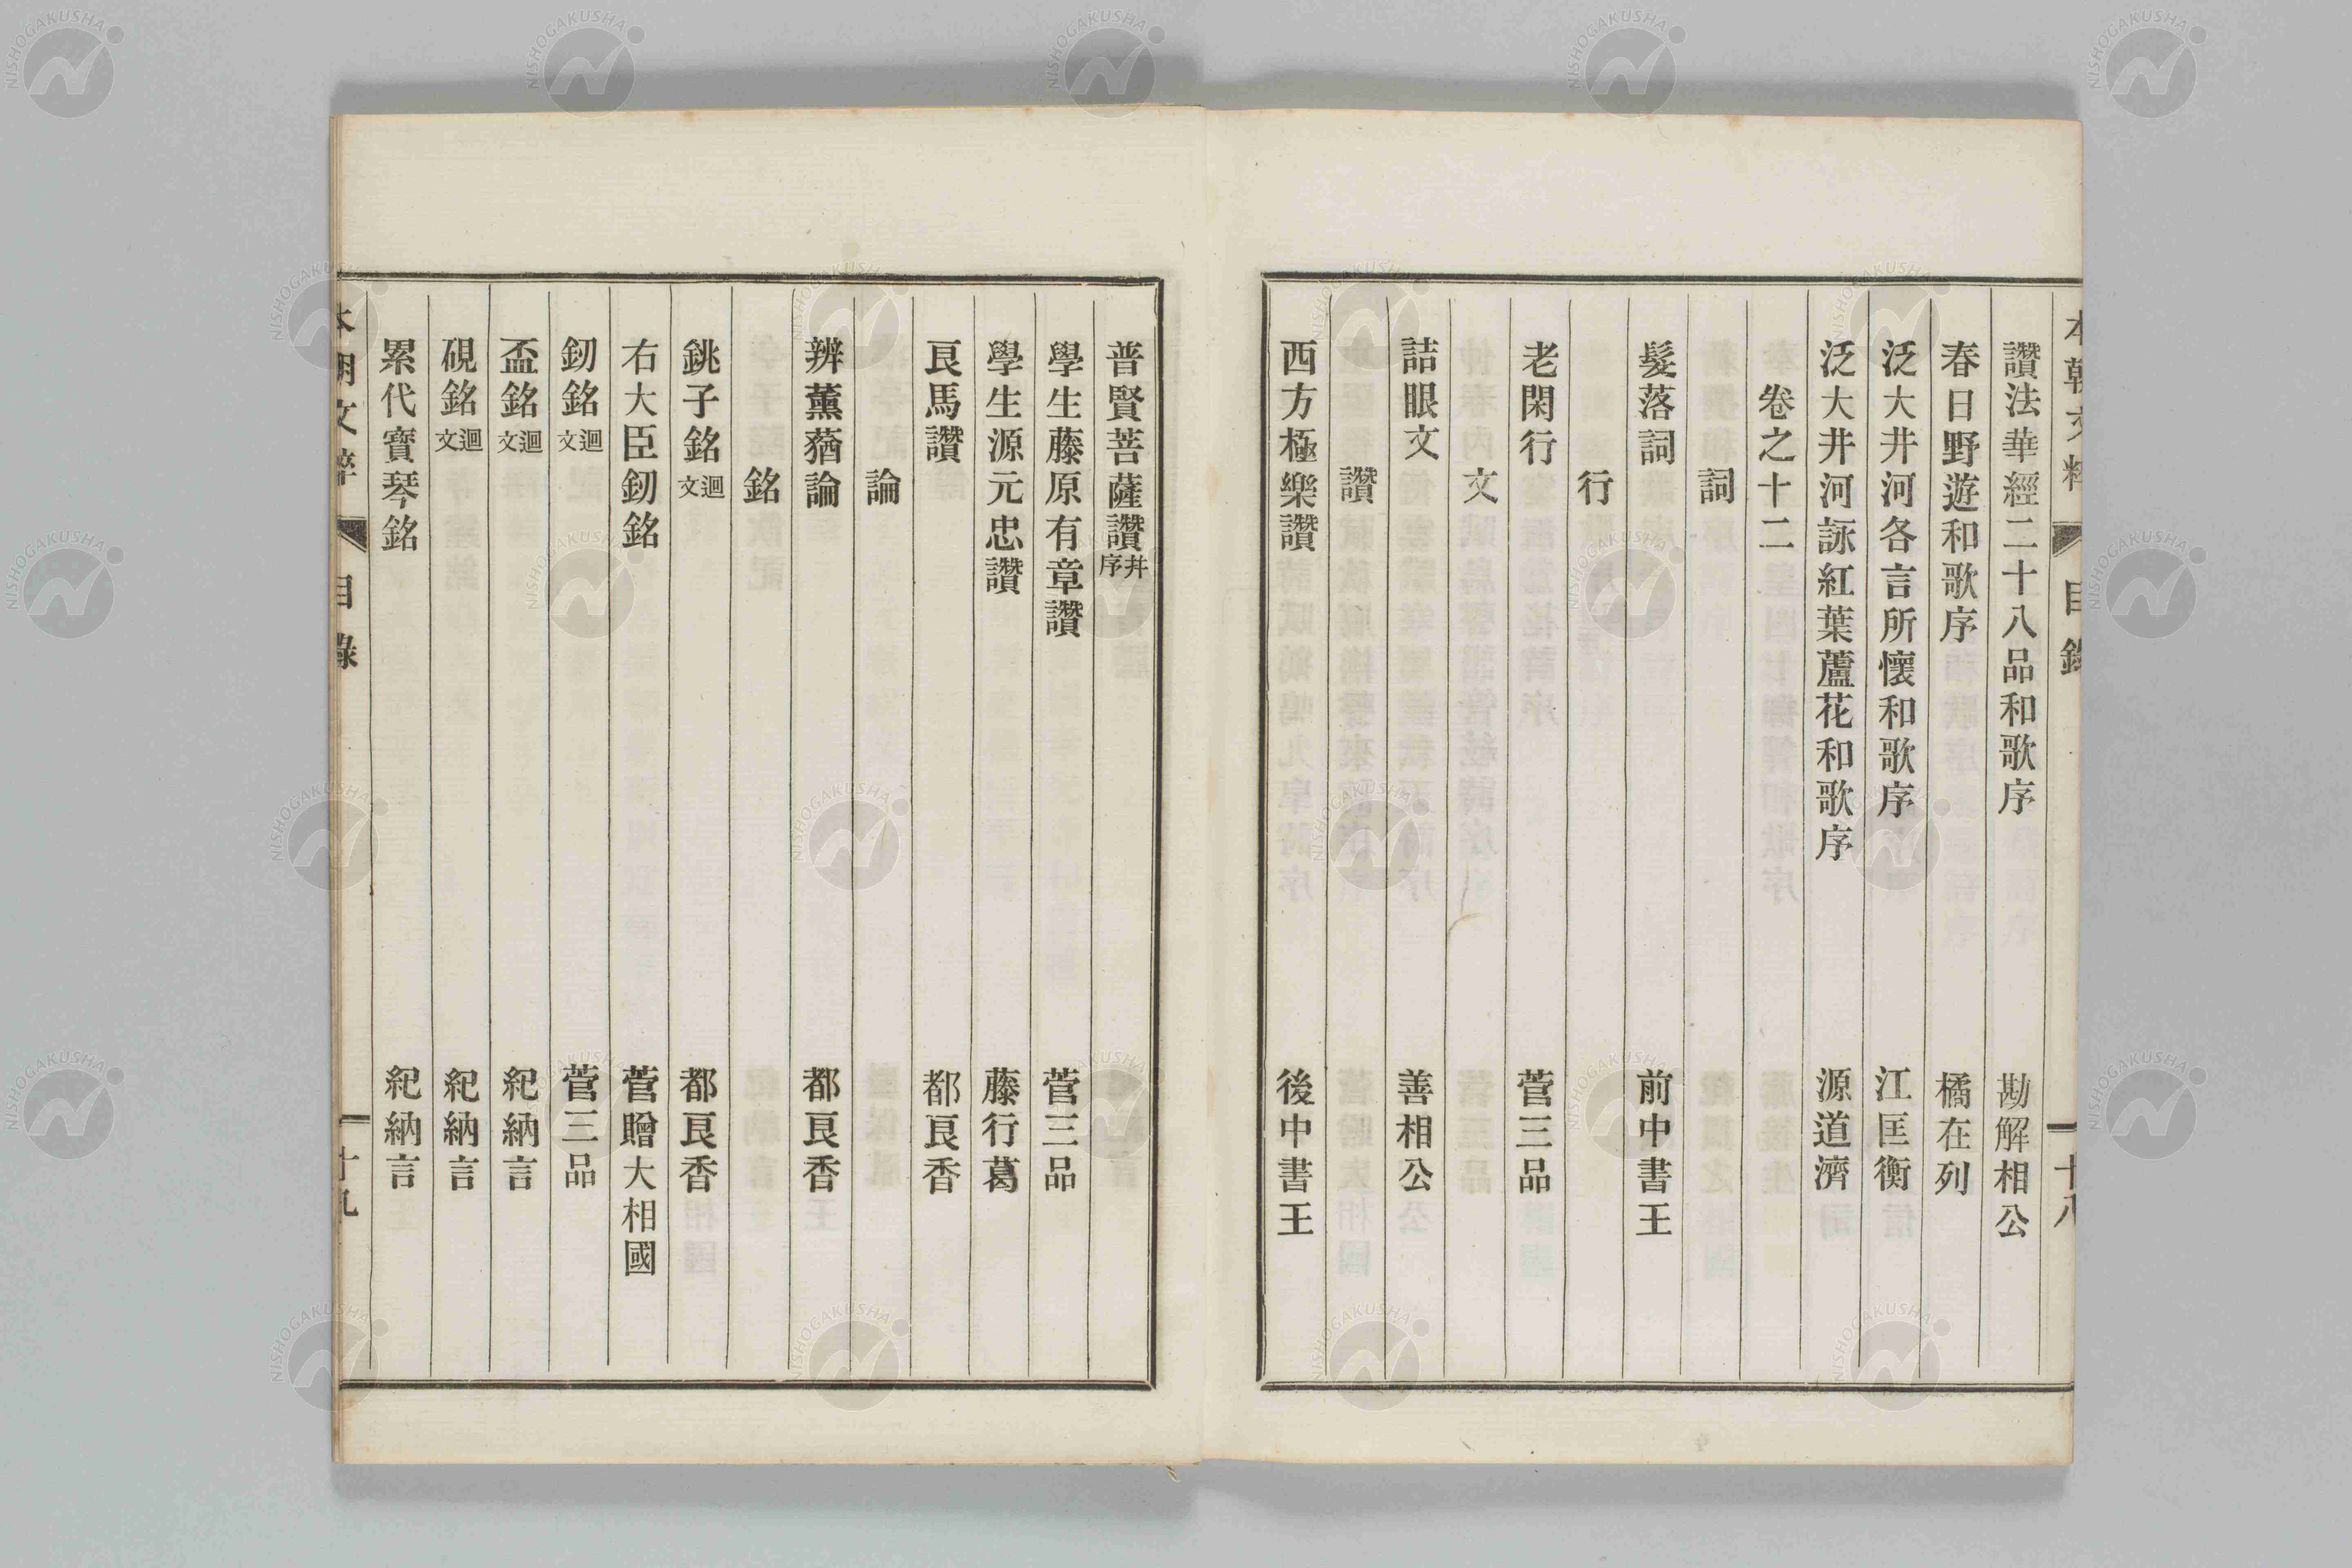 讚法華經二十八品和歌序 勘解相公
春日野遊和歌序 橘在列
泛大井河各言所懷和歌序 江匡衡
泛大井河詠紅葉蘆花和歌序 源道濟
卷之十二
詞
髮落詞 前中書王
行
老閑行 菅三品
文
詰眼文 善相公
讚
西方極樂讚 後中書王
普賢菩薩讚 幷序
學生藤原有章讚 菅三品
學生源元忠讚 藤行葛
良馬讚 都良香
論
辨薰蕕論 都良香
銘
銚子銘 迴文 都良香
右大臣釰銘 菅贈大相國
釰銘 迴文 菅三品
盃銘 迴文 紀納言
硯銘 迴文 紀納言
累代寶琴銘 紀納言
NISHOGAKUSHA